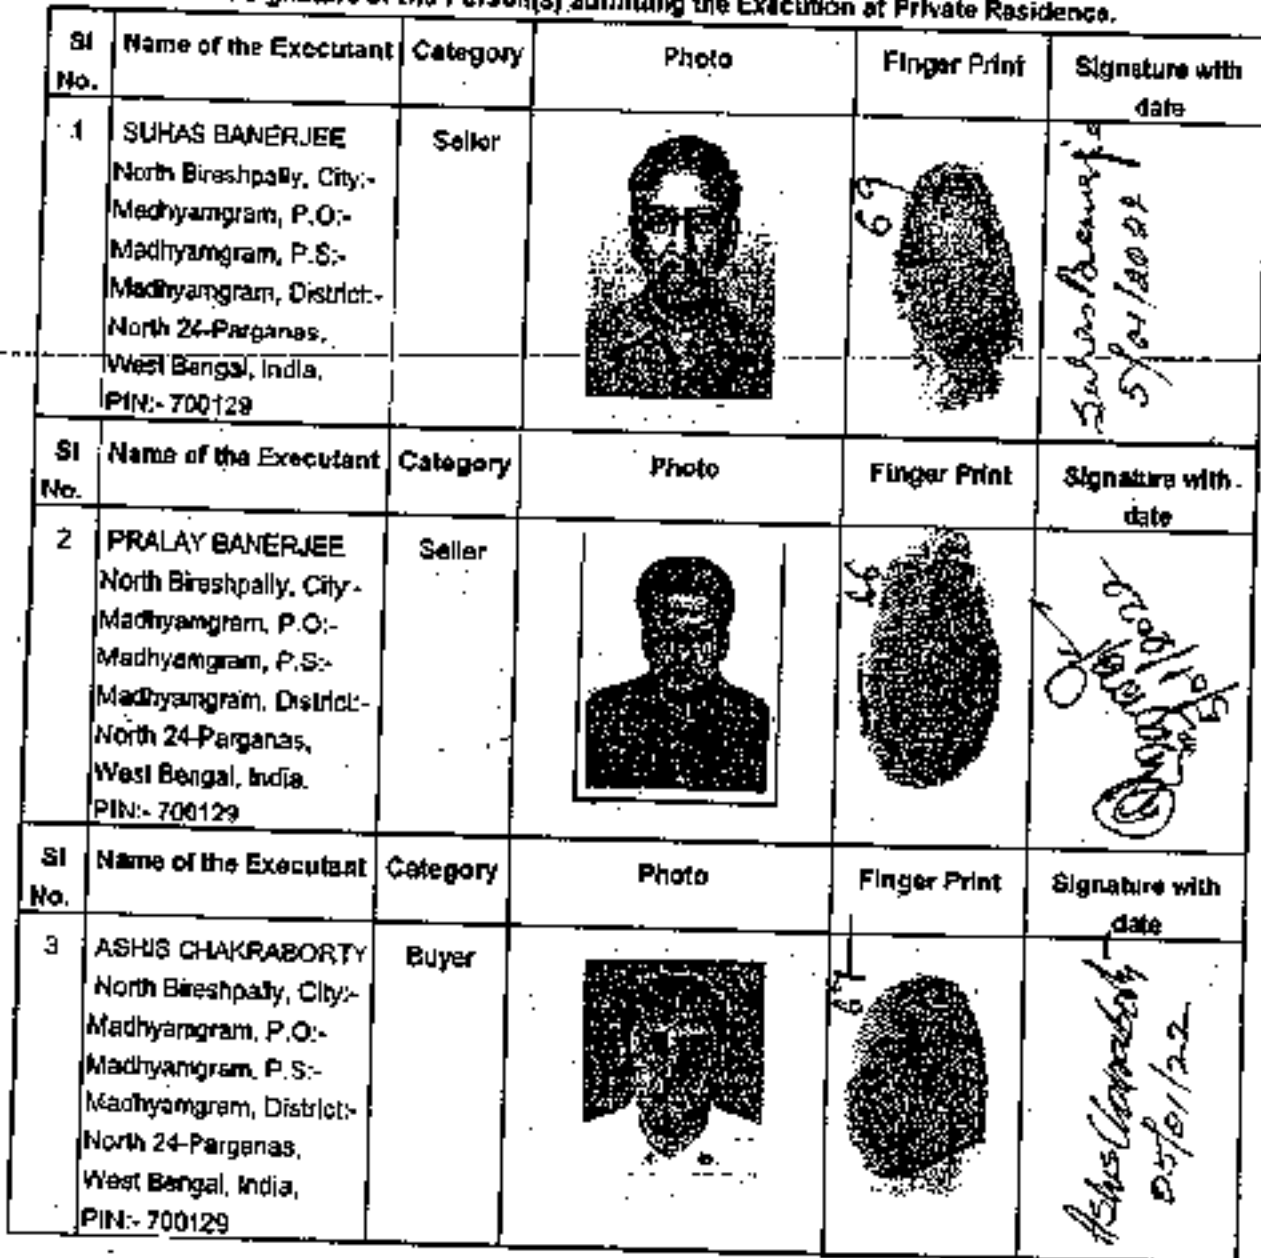 Signature of the Person(s) admitting the Execution at Private Residence.
Sl No. Name of the Executant Category Photo Finger Print Signature with date
1 SUHAS BANERJEE Seller
North Bireshpally, City:-
Madhyamgram, P.O:-
Madhyamgram, P.S:-
Madhyamgram, District:-
North 24-Parganas,
West Bengal, India,
PIN:- 700129
69
Suhas Banerjee
5/01/2022
Sl No. Name of the Executant Category Photo Finger Print Signature with date
2 PRALAY BANERJEE Seller
North Bireshpally, City:-
Madhyamgram, P.O:-
Madhyamgram, P.S:-
Madhyamgram, District:-
North 24-Parganas,
West Bengal, India,
PIN:- 700129
Sl No. Name of the Executant Category Photo Finger Print Signature with date
3 ASHIS CHAKRABORTY Buyer
North Bireshpally, City:-
Madhyamgram, P.O:-
Madhyamgram, P.S:-
Madhyamgram, District:-
North 24-Parganas,
West Bengal, India,
PIN:- 700129
Ashis Chakraborty
05/01/22